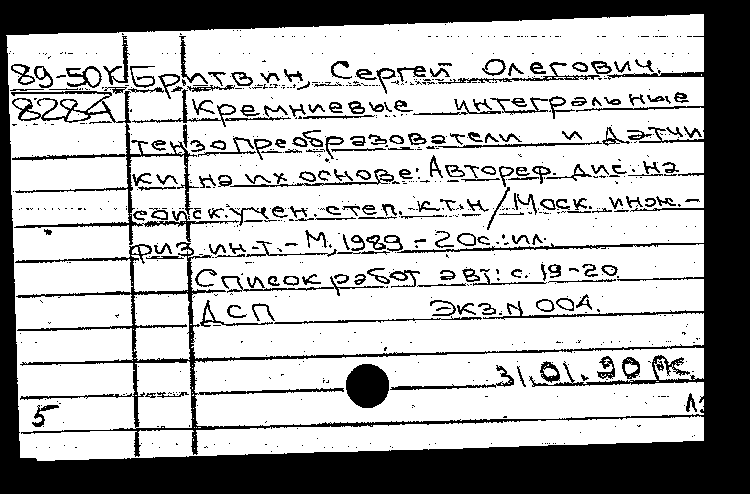 89-50К Бритвин, Сергей Олегович.
8284 Кремниевые интегральные
тензопреобразователи и датчи
ки на их основе: Автореф. дис. на
соиск. учен. степ. к.т.н / Моск. инж.-
физ ин-т. - М, 1989. - 20с.: ил.
Список работ авт: с. 19-20
ДСП Экз. N 004.
31.01.90
5